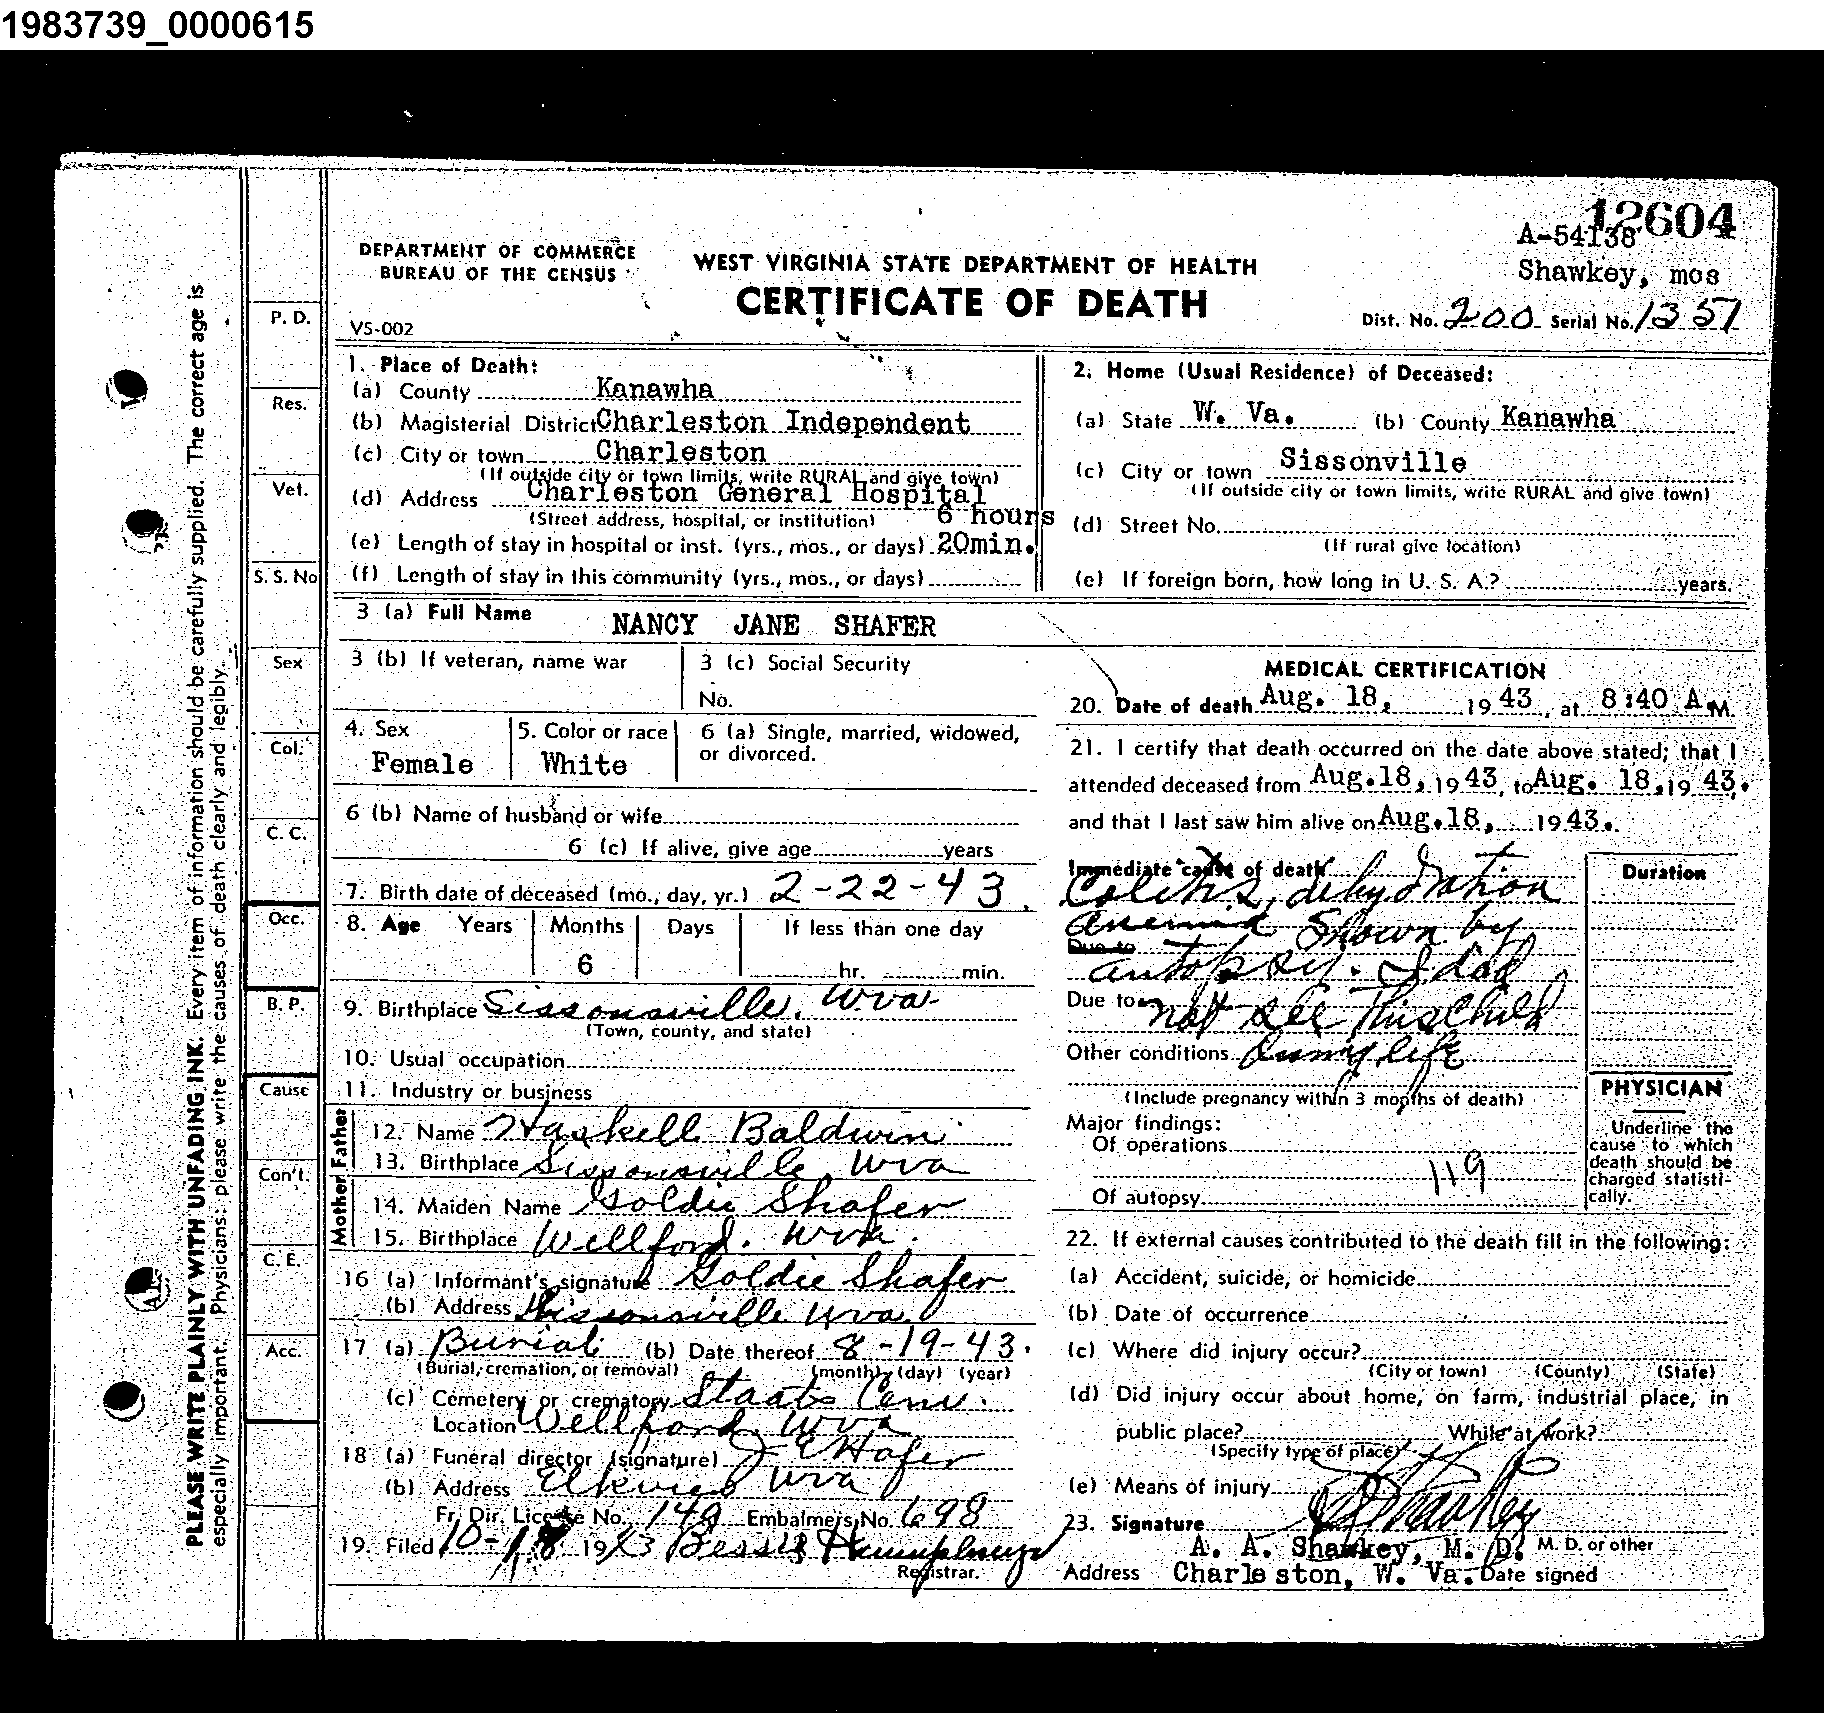 1983739_0000615
12604
A-54138
Shawkey, mos
DEPARTMENT OF COMMERCE
BUREAU OF THE CENSUS
WEST VIRGINIA STATE DEPARTMENT OF HEALTH
CERTIFICATE OF DEATH
VS-002
Dist. No. 200 Serial No. 1357
PLEASE WRITE PLAINLY WITH UNFADING INK. Every item of information should be carefully supplied. The correct age is
especially important. Physicians: please write the causes of death clearly and legibly.
P. D.
Res.
Vet.
S. S. No
Sex
Col.
C. C.
Occ.
B. P.
Cause
Con't.
C. E.
Acc.
1. Place of Death:
(a) County Kanawha
(b) Magisterial District Charleston Independent
(c) City or town Charleston
(If outside city or town limits, write RURAL and give town)
(d) Address Charleston General Hospital
(Street address, hospital, or institution) 6 hours
(e) Length of stay in hospital or inst. (yrs., mos., or days) 20min.
(f) Length of stay in this community (yrs., mos., or days)
2. Home (Usual Residence) of Deceased:
(a) State W. Va. (b) County Kanawha
(c) City or town Sissonville
(If outside city or town limits, write RURAL and give town)
(d) Street No.
(If rural give location)
(e) If foreign born, how long in U. S. A.? years.
3 (a) Full Name NANCY JANE SHAFER
3 (b) If veteran, name war
3 (c) Social Security
No.
4. Sex
Female
5. Color or race
White
6 (a) Single, married, widowed,
or divorced.
6 (b) Name of husband or wife
6 (c) If alive, give age years
7. Birth date of deceased (mo., day, yr.) 2-22-43.
8. Age Years Months Days If less than one day
6 hr. min.
9. Birthplace Sissonsville, Wva
(Town, county, and state)
10. Usual occupation
11. Industry or business
Father
12. Name Haskell Baldwin
13. Birthplace Sissonsville, Wva
Mother
14. Maiden Name Goldie Shafer
15. Birthplace Wellford. Wva.
16 (a) Informant's signature Goldie Shafer
(b) Address Sissonsville Wva.
17 (a) Burial (b) Date thereof 8-19-43.
(Burial, cremation, or removal) (month) (day) (year)
(c) Cemetery or crematory Staats Cem.
Location Wellford, Wva
18 (a) Funeral director (signature) J E Hafer
(b) Address Elkview Wva
Fr. Dir. License No. 140 Embalmers No. 698
19. Filed 10-18 1943 Bessie Humphreys
Registrar.
MEDICAL CERTIFICATION
20. Date of death Aug. 18, 1943, at 8:40 A.M.
21. I certify that death occurred on the date above stated; that I
attended deceased from Aug.18, 1943, to Aug. 18, 1943.
and that I last saw him alive on Aug.18, 1943.
Immediate cause of death
Colitis, dehydration
anemia Shown by
Due to
autopsy. I did
Due to not see this child
Other conditions during life
(Include pregnancy within 3 months of death)
Major findings:
Of operations
119
Of autopsy
Duration
PHYSICIAN
Underline the
cause to which
death should be
charged statisti-
cally.
22. If external causes contributed to the death fill in the following:
(a) Accident, suicide, or homicide
(b) Date of occurrence
(c) Where did injury occur?
(City or town) (County) (State)
(d) Did injury occur about home, on farm, industrial place, in
public place? While at work?
(Specify type of place)
(e) Means of injury
23. Signature A A Shawkey
A. A. Shawkey, M. D. M. D. or other
Address Charleston, W. Va. Date signed